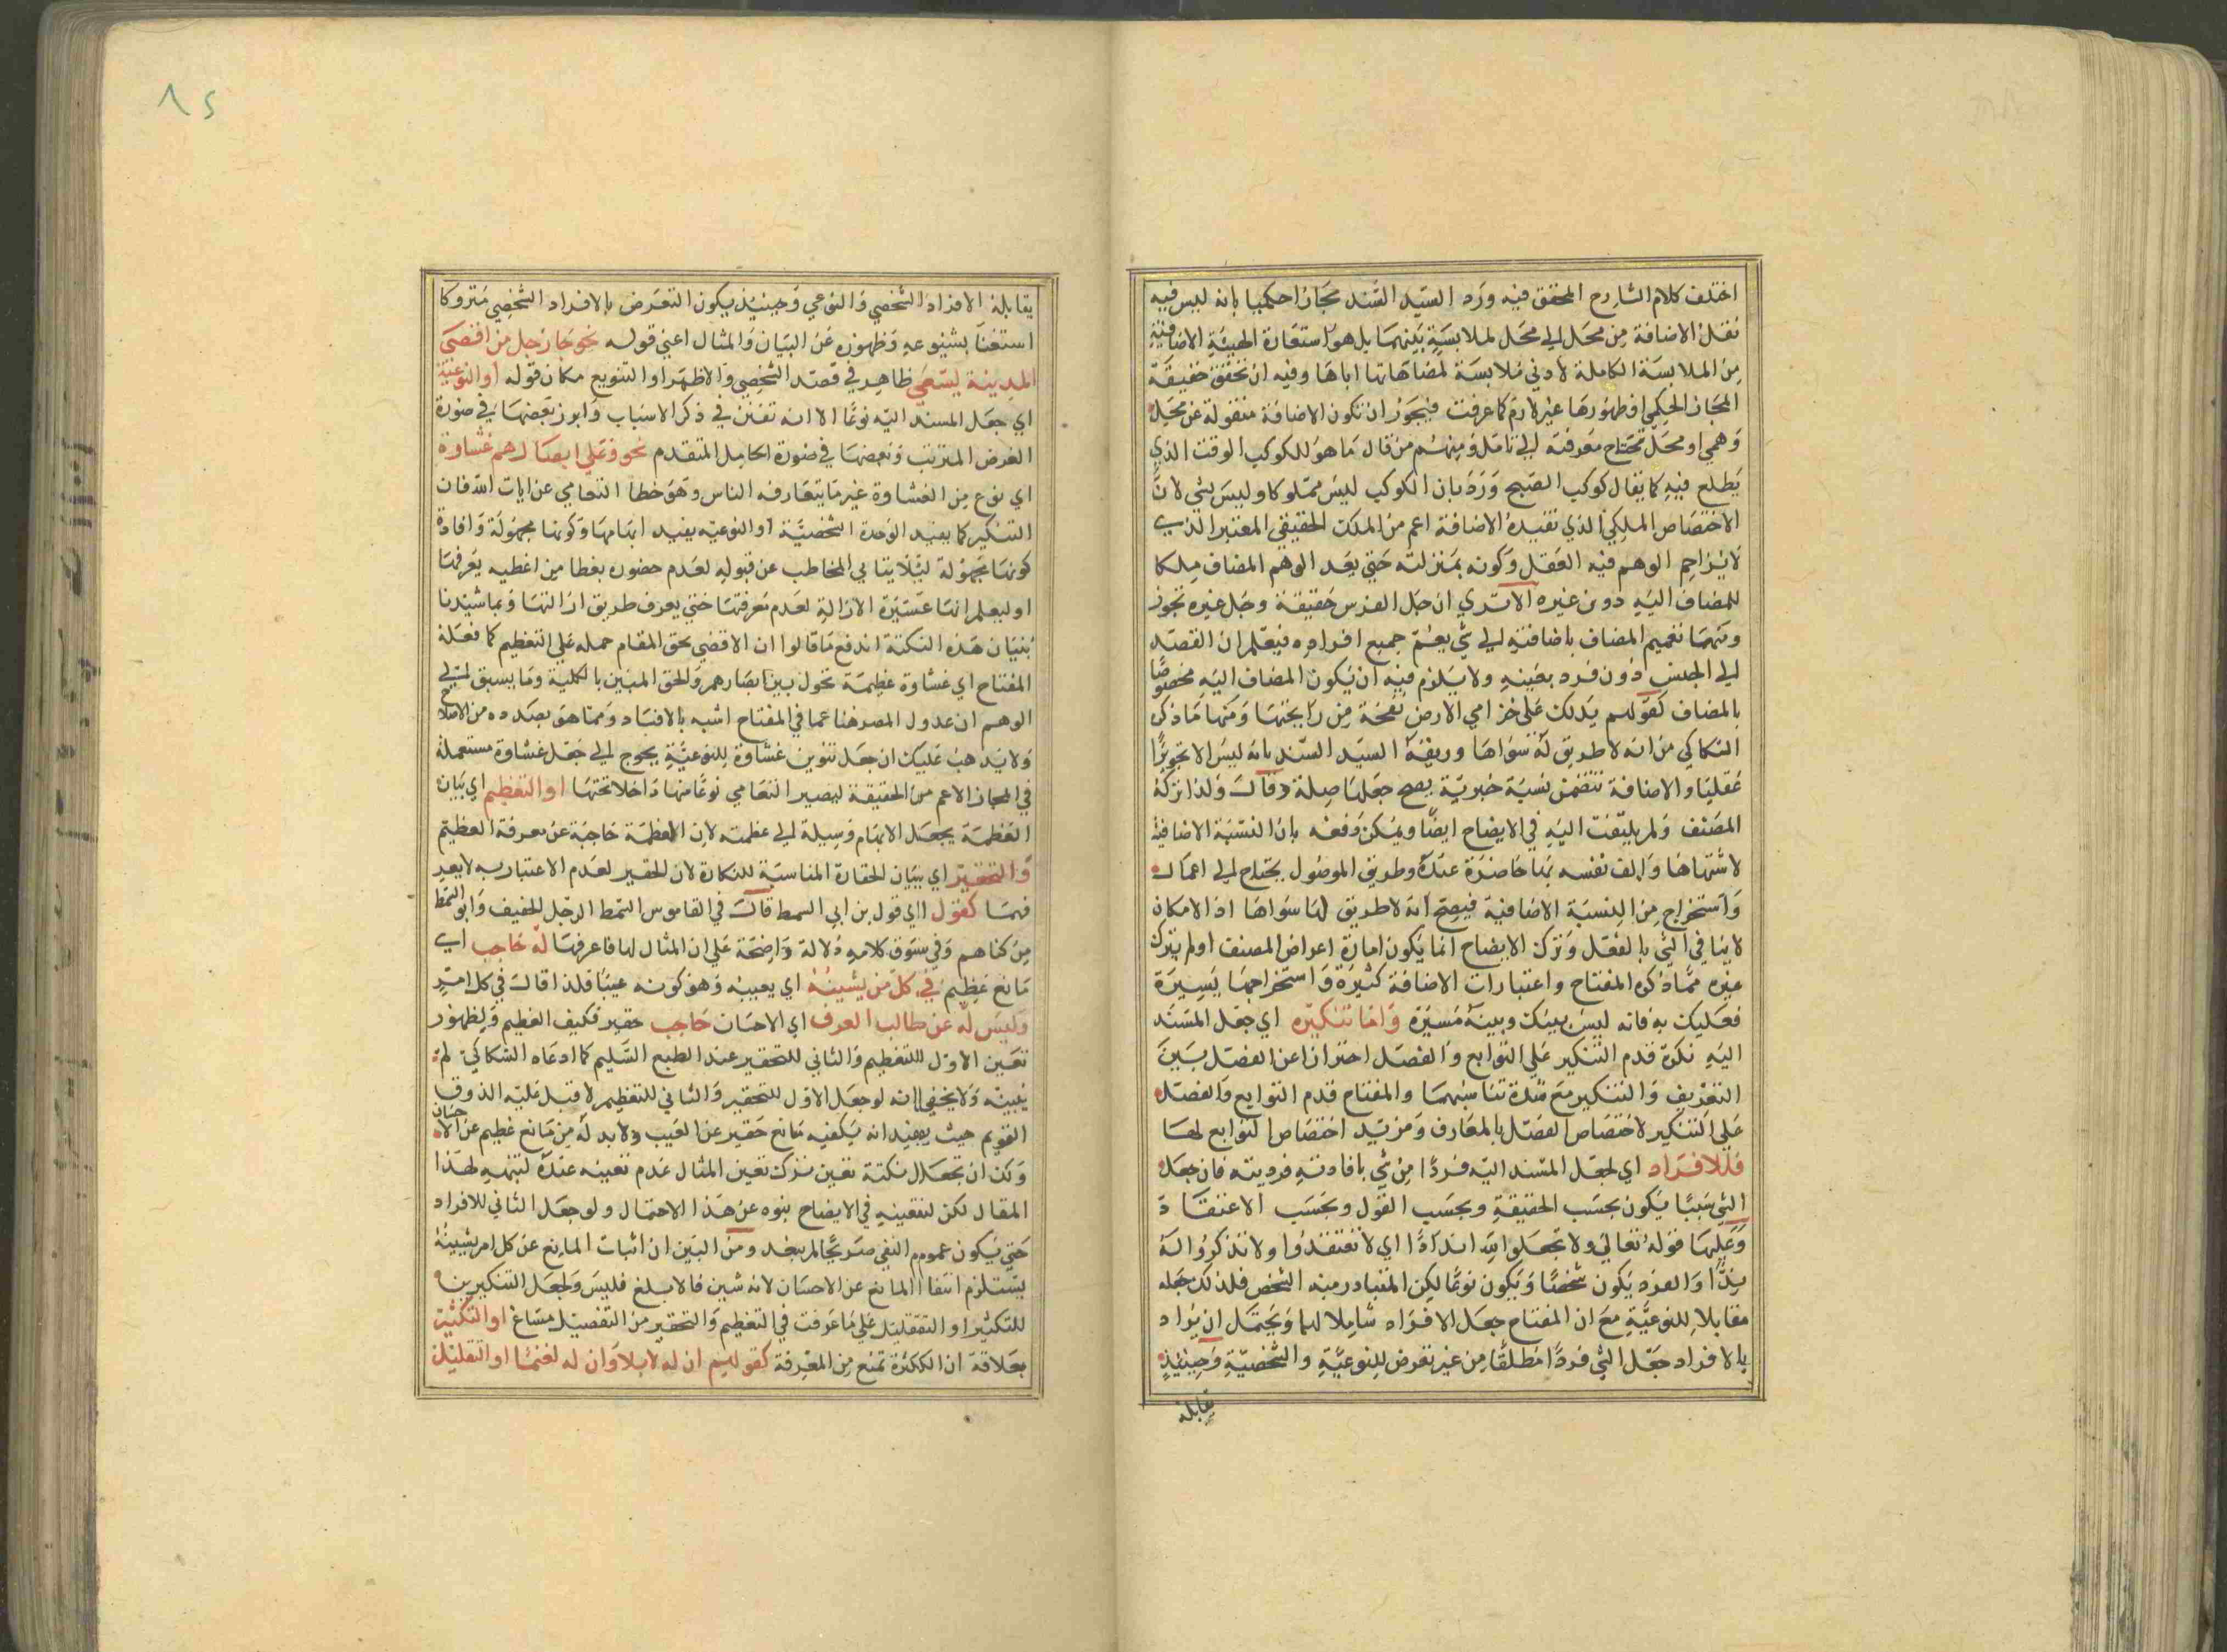 اختلف كلام الشارح المحقق فيه ورد السيد السند مجازا حكميا بانه ليس فيه
نقل الاضافة من محل الى محل لملابسة بينهما بل هو استعارة الهيئة الاضافية
من الملابسة الكاملة لادنى ملابسة لمضاهاتها اياها وفيه ان تحقق حقيقة
المجاز الحكمي او ظهورها غير لازم كما عرفت فيجوز ان تكون الاضافة منقولة عن محل
وهمي او محل تحتاج معرفته الى تامل ومنهم من قال ما هو للكوكب الوقت الذي
يطلع فيه كما يقال كوكب الصبح ورد بان الكوكب ليس مملوكا وليس بشي لان
الاختصاص الملكي الذي تفيده الاضافة اعم من الملك الحقيقي المعتبر الذي
لا يزاحم الوهم فيه العقل وكونه بمنزلته حتى يعد الوهم المضاف ملكا
للمضاف اليه دون غيره الا ترى ان جل الفرس حقيقة وجل غيره تجوز
ومنها تعميم المضاف باضافته الى شي يعم جميع افراده فيعلم ان القصد
الى الجنس دون فرد بعينه ولا يلزم فيه ان يكون المضاف اليه مخصوصا
بالمضاف كقولهم يدلك على خزامي الارض نفحة من رايحتها ومنها ما ذكره
السكاكي من انه لا طريق له سواها وزيفه السيد السند بانه ليس الا تجويزا
عقليا والاضافة تتضمن نسبة خبرية يصح جعلها صلة قال ولذا تركه
المصنف ولم يلتفت اليه في الايضاح ايضا ويمكن دفعه بان النسبة الاضافية
لاشتهاها والف نفسه بها حاضرة عنده وطريق الموصول يحتاج الى اعمال
واستخراج من النسبة الاضافية فيصح انه لا طريق لها سواها اذ الامكان
لا ينافي الشي بالفعل وترك الايضاح انما يكون امارة اعراض المصنف او لم يترك
غيره مما ذكره المفتاح واعتبارات الاضافة كثيرة واستخراجها يسيرة
فعليك به فانه ليس بينك وبينه مسيرة واما تنكيره اي جعل المسند
اليه نكرة قدم التنكير على التوابع والفصل احترازا عن الفصل بين
التعريف والتنكير مع شدة تناسبهما والمفتاح قدم التوابع والفصل
على التنكير لاختصاص الفصل بالمعارف ومزيد اختصاص التوابع لها
فللافراد اي لجعل المسند اليه فردا من شي بافادته فرديته فان جعل
الشي سببا يكون بحسب الحقيقة وبحسب القول وبحسب الاعتقاد
وعليها قوله تعالى ولا تجعلوا لله اندادا اي لا تعتقدوا ولا تذكروا له
ندا والفرد يكون شخصا ويكون نوعا لكن المتبادر منه الشخص فلذلك جعله
مقابلا للنوعية مع ان المفتاح جعل الافراد شاملا لهما ويحتمل ان يراد
بالافراد جعل الشي فردا مطلقا من غير تعرض للنوعية والشخصية وحينئذ
يقابله
٨٢
يقابله الافراد الشخصي والنوعي وحينئذ يكون التعرض بالافراد الشخصي متروكا
استغنا بشيوعه وظهوره عن البيان والمثال اعني قوله نحو جا رجل من اقصى
المدينة يسعى ظاهر في قصد الشخصي والاظهر او التنويع مكان قوله او النوعية
اي جعل المسند اليه نوعا الا انه تفنن في ذكر الاسباب وابرز بعضها في صورة
الغرض المترتب وبعضها في صورة الحامل المتقدم نحو وعلى ابصارهم غشاوة
اي نوع من الغشاوة غير ما يتعارفه الناس وهو غطا التعامي عن ايات الله فان
التنكير كما يفيد الوحدة الشخصية او النوعيه يفيد ابهامها وكونها مجهولة وافادة
كونها مجهولة ليلا يتابي المخاطب عن قبوله لعدم حضوره بغطا من اغطيه يعرفها
او ليعلم انها عسيرة الازالة لعدم معرفتها حتى يعرف طريق ازالتها وبما شيدنا
بنيان هذه النكتة اندفع ما قالوا ان الاقضى بحق المقام حمله على التعظيم كما فعله
المفتاح اي غشاوة عظيمة تحول بين ابصارهم والحق المبين بالكلية وما يسبق الى
الوهم ان عدول المص هنا عما في المفتاح اشبه بالافساد ومما هو بصدده من الاصلاح
ولا يذهب عليك ان جعل تنوين غشاوة للنوعية يحوج الى جعل غشاوة مستعملة
في المجاز الاعم من الحقيقة ليصير التعامي نوعا منها داخلا تحتها او التعظيم اي بيان
العظمة يجعل الابهام وسيلة الى عظمته لان العظمة حاجبة عن معرفة العظيم
والتحقير اي بيان الحقارة المناسبة للنكارة لان الحقير لعدم الاعتبار به لا يعد
فهما كقول اي قول بن ابي السمط قال في القاموس السمط الرجل الخفيف وابو السمط
من كناهم وفي سوق كلامه دلالة واضحة على ان المثال لهما فاعرفها له حاجب اي
مانع عظيم في كل من يشينه اي يعيبه وهو كونه عيبا فلذا قال في كل امر
وليس له عن طالب العرف اي الاحسان حاجب حقير فكيف العظيم ولظهور
تعين الاول للتعظيم والثاني للتحقير عند الطبع السليم كما ادعاه السكاكي لم
يبينه ولا يخفى انه لو جعل الاول للتحقير والثاني للتعظيم لا قبل عليه الذوق
القويم حيث يفيد انه يكفيه مانع حقير عن العيب ولا بد له من مانع عظيم عن الاحسان
ولك ان تجعل نكتة تعين ترك تعين المثال عدم تعينه عنده لتنبهه لهذا
المقال لكن لتعينه في الايضاح ينوه عن هذا الاحتمال ولو جعل الثاني للافراد
حتى يكون عموم النفي صريحا لم يبعد ومن البين ان اثبات المانع عن كل امر يشينه
يستلزم انتفا المانع عن الاحسان لانه شين فالابلغ فليس ولجعل التنكيرين
للتكثير او التقليل على ما عرفت في التعظيم والتحقير من التفصيل مساغ او التكثير
بعلاقة ان الكثرة تمنع من المعرفة كقولهم ان له لابلا وان له لغنما او التقليل